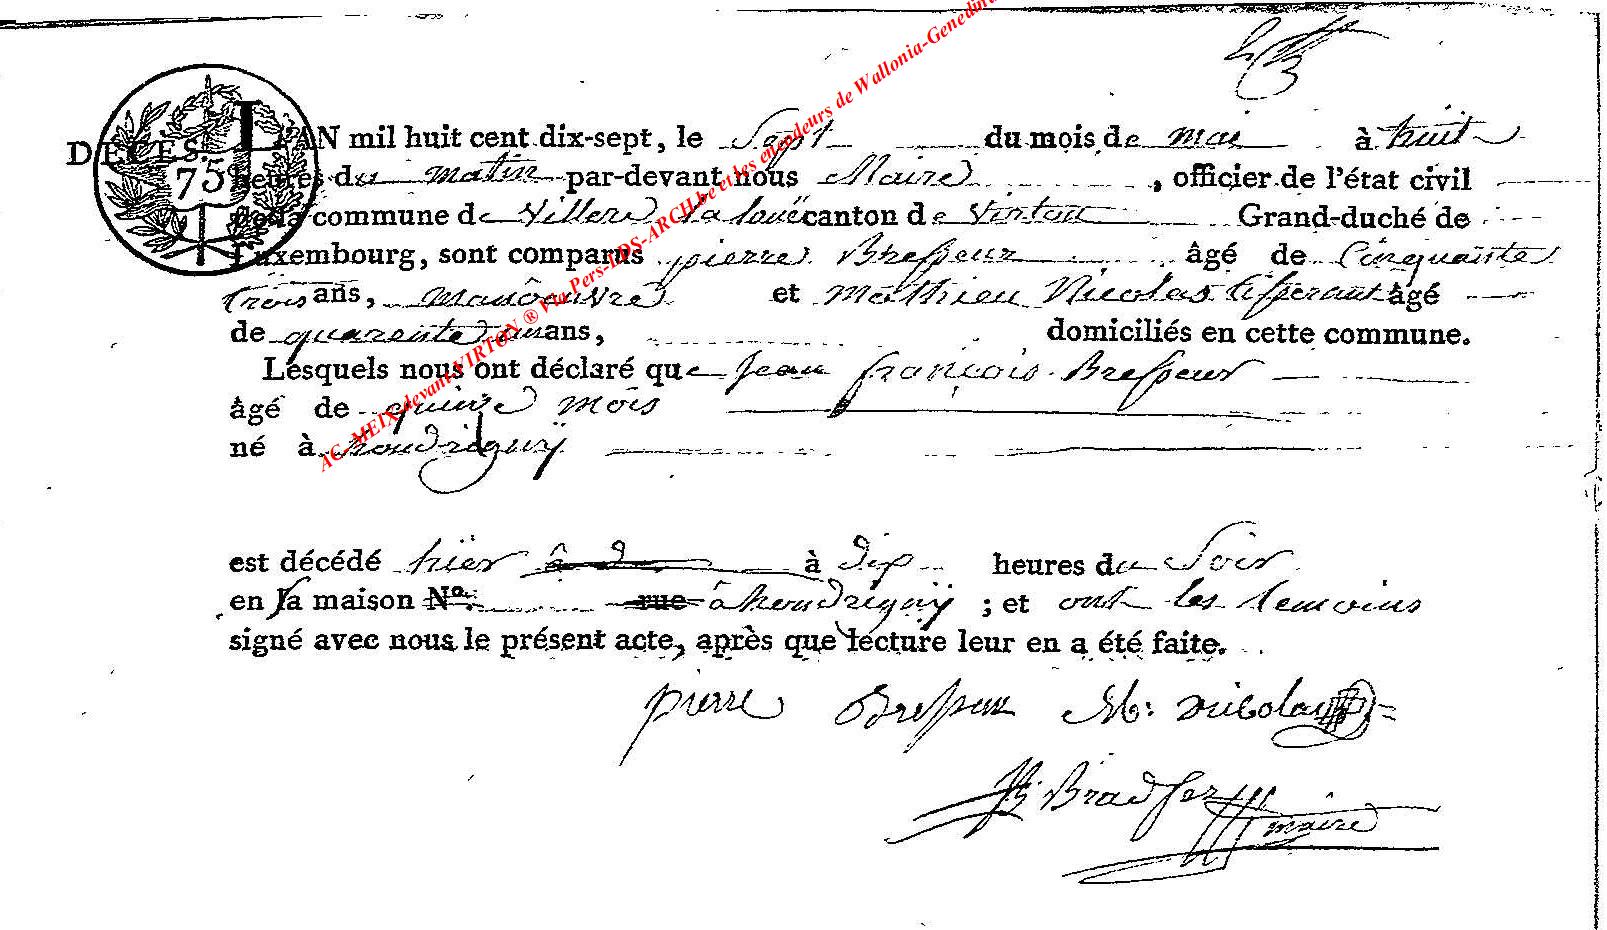 DÉCÈS.
75
L'AN mil huit cent dix-sept, le Sept du mois de mai à huit
heures du matin par-devant nous Maire , officier de l'état civil
de la commune de Villers la loué canton de Virton Grand-duché de
Luxembourg, sont comparus pierre Bresseur âgé de Cinquante
trois ans, manôeuvre et Mathieu Nicolas tisserant âgé
de quarente un ans, domiciliés en cette commune.
Lesquels nous ont déclaré que Jean françois Bresseur
âgé de quinze mois
né à houdrigny
est décédé hier à dix heures du Soir
en la maison No. rue â houdrigny ; et ont les temoins
signé avec nous le présent acte, après que lecture leur en a été faite.
pierre Bresseur M: nicolas
Bradfer
maire
AC-MEIX-devant-VIRTON ® Via Pers-LDS-ARCH.be et les encodeurs de Wallonia-Genedinfo